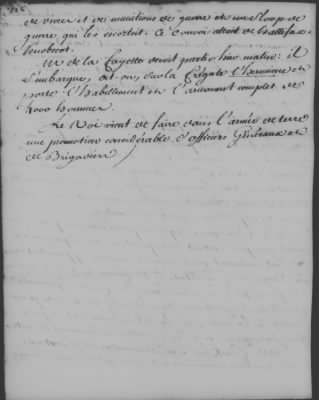 de vivres et de munitions de guerre et une Sloop de
guerre qui les escortait. Ce convoi allait de hallefax
Penobscot.
M. de la Fayette devait partir hier matin: il
s'embarque, dit-on, sur la frégate l'hermione et
porte l'habillement et l'armement complet de
4000 hommes
Le Roi vient de faire dans l'armée de terre
une promotion considérable d'officiers Généraux et
de Brigadiers